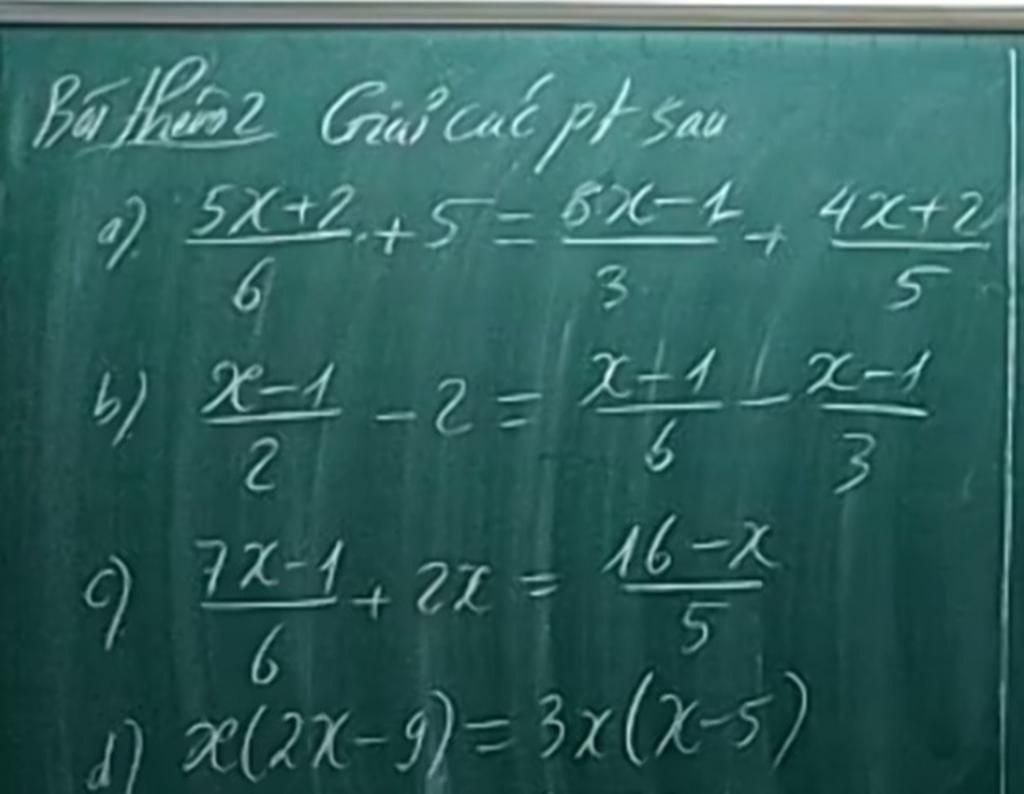 Bài thêm 2 Giải các pt sau
a) (5x+2)/6 + 5 = (8x-1)/3 + (4x+2)/5
b) (x-1)/2 - 2 = (x-1)/6 - (x-1)/3
c) (7x-1)/6 + 2x = (16-x)/5
d) x(2x-9) = 3x(x-5)